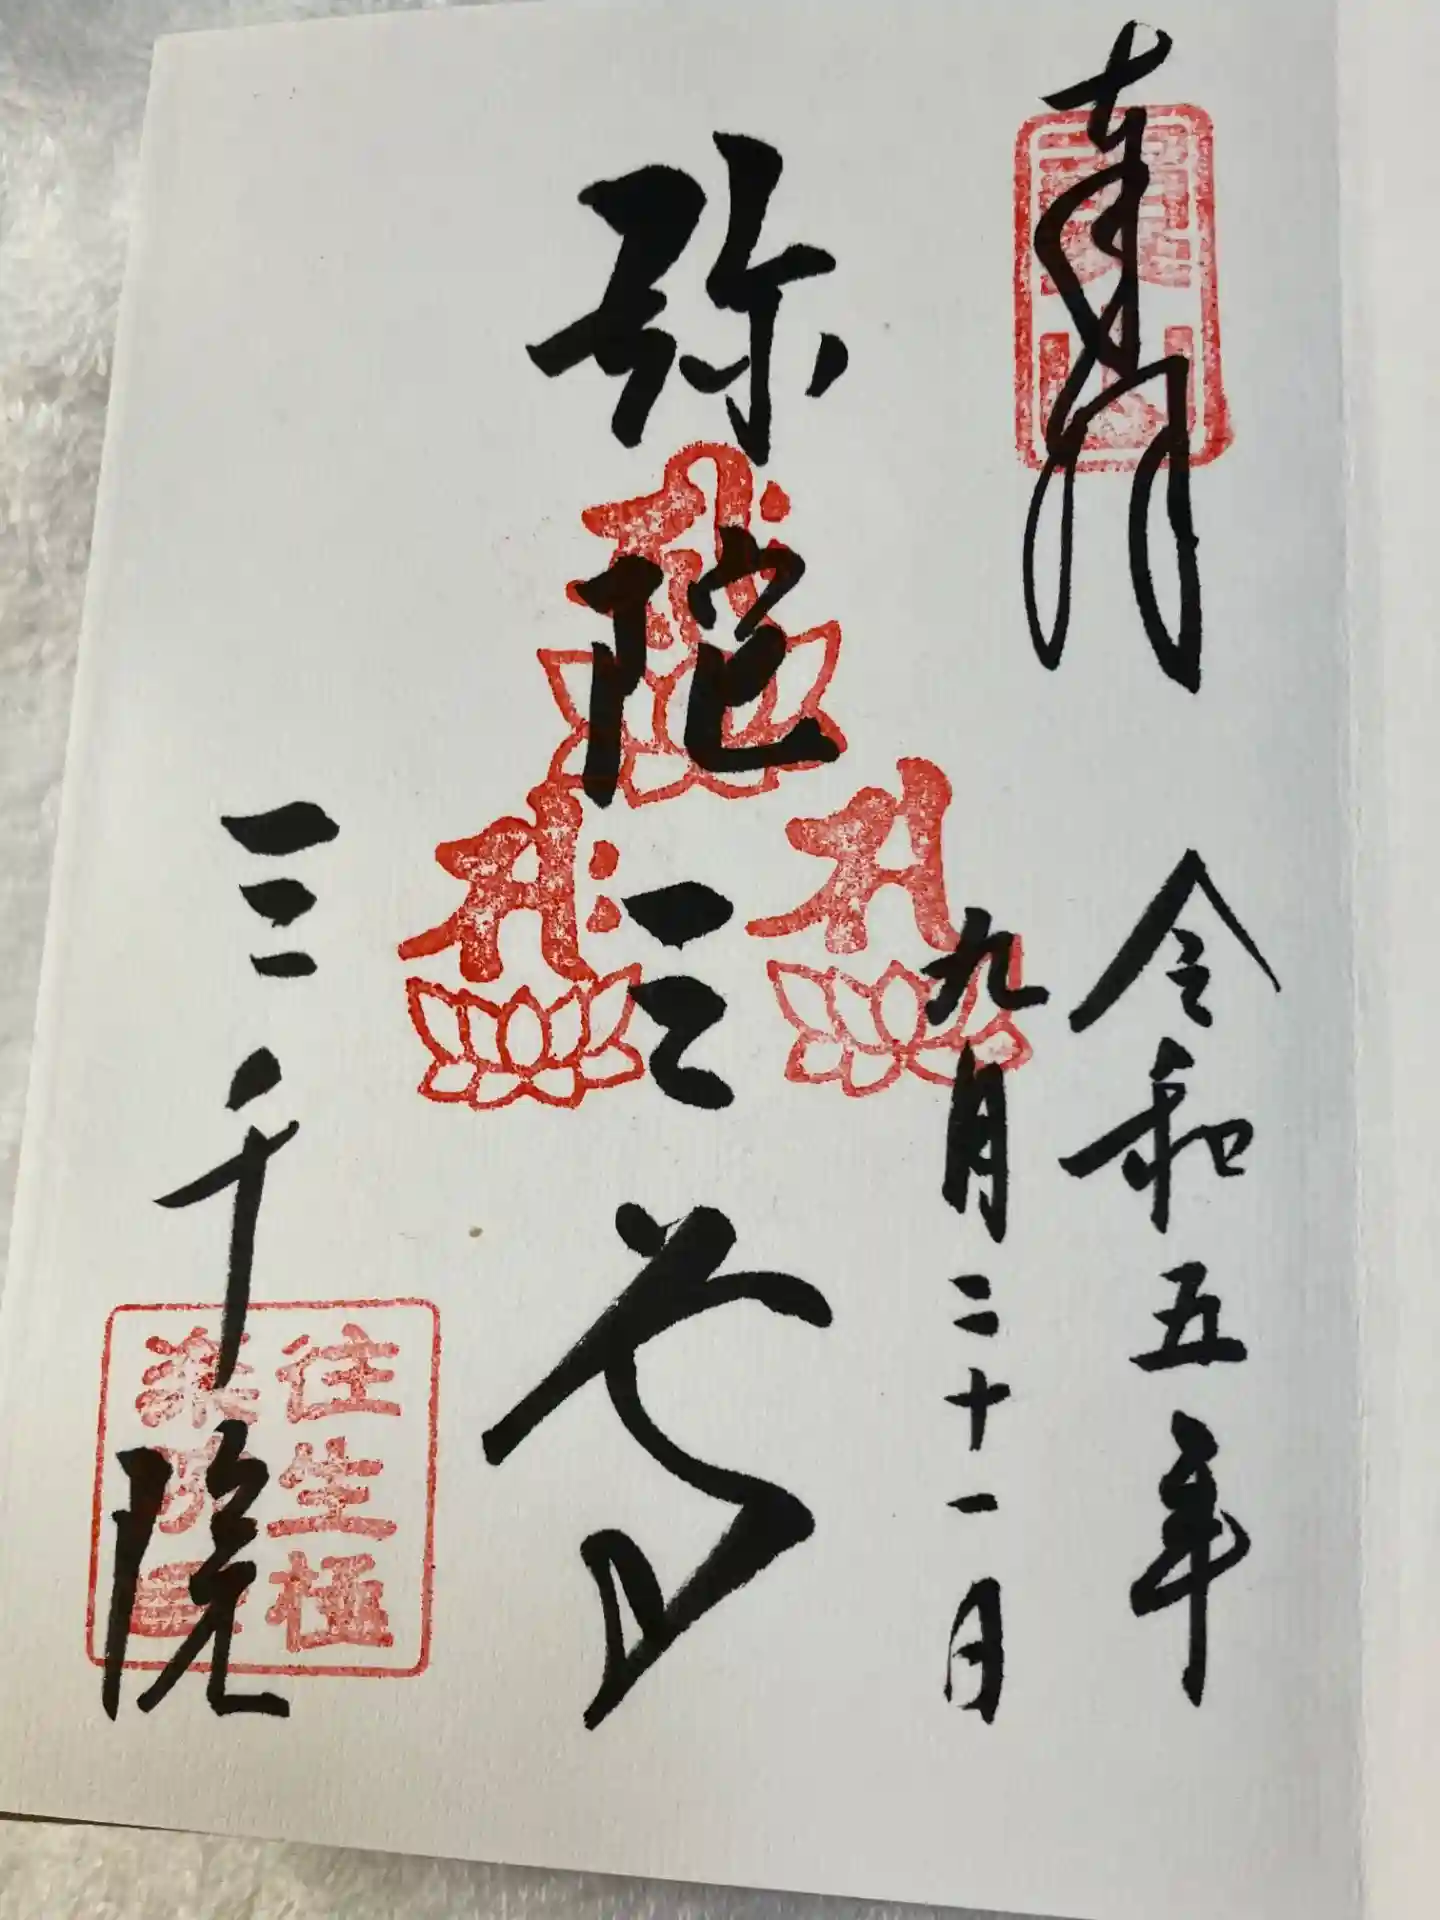 奉拝
令和五年
九月二十一日
弥陀三尊
三千院
往生極
楽院